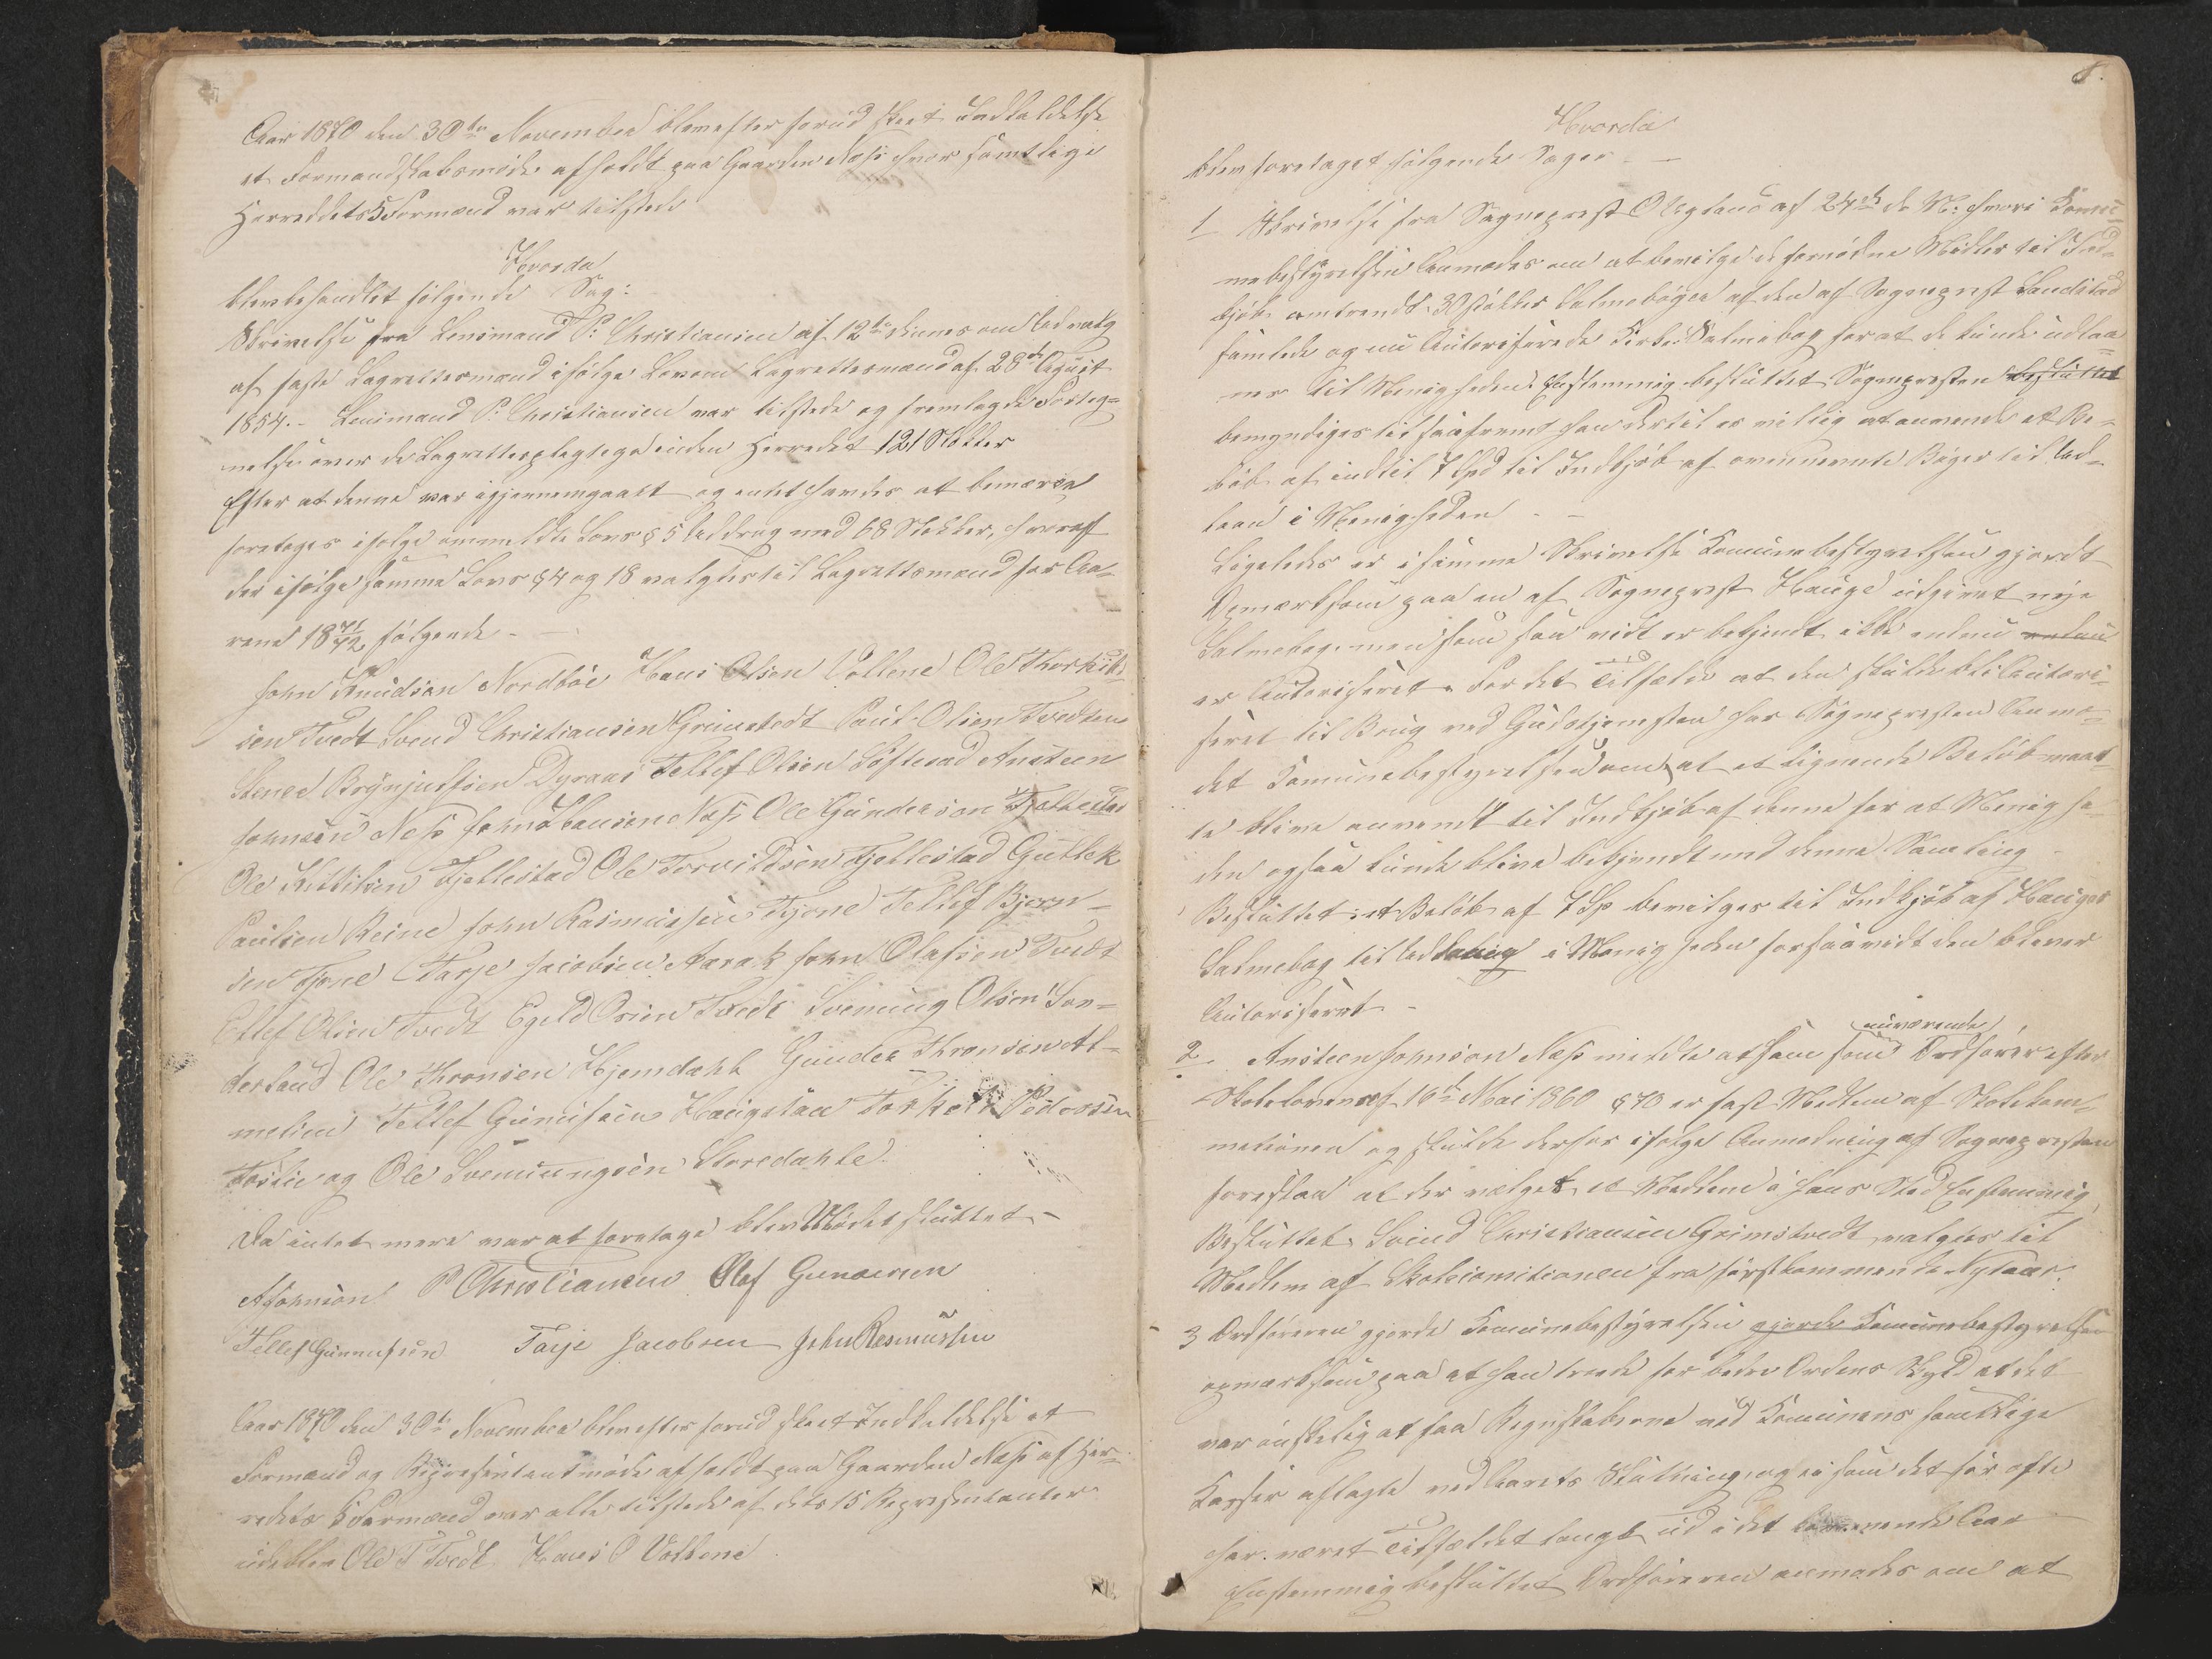 Aar 1870 den 30te November blev efter forud skeet Indkaldelse
et Formandskabsmøde afholdt paa Gaarden Næss hvor samtlige
Herredets 5 Formænd var tilstede
Hvorda
blev behandlet følgende Sag:
Skrivelse fra Lensmand P: Christiansen af 12te dennes om Udvalg
af faste Lagrettesmænd ifølge Lov om Lagrettesmænd af 28de August
1854.- Lensmand P: Christiansen var tilstede og fremlagde Forteg=
nelse over de Lagrettespligtige inden Herredet 121 Stykker
Efter at denne var igjennemgaaet og intet fandtes at bemærke
foretoges ifølge anmeldte Lovs § 5 Uddrag med 68 Stykker, hvoraf
der ifølge samme Lovs § 4 og 18 valgtes til Lagrettesmænd for Aa=
rene 1871/72 følgende -
John Knudsen Nordbøe Hans Olsen Vollene Ole Thorkil=
sen Tvedt Svend Christiansen Grimstvedt Paul Olsen Tvedten
Stener Brynjulfsen Dyraas Tellef Olsen Löftesad Ansteen
Johnsen Næs John Hansen Næss Ole Gundersen Fjellestad
Ole Kittilsen Fjellestad Ole Torvildsen Fjellestad Gullek
Paulsen Reine John Rasmussen Tjone Tellef Bjørn=
sen Tjone Tarje Jacobsen Aarak John Olafsen Tvedt
Ellef Olsen Tvedt Egeld Osien Tvedt Svenung Olsen Søn=
derland Ole Thronsen Hjemdahl Gunder Thronsen At=
melien Tellef Gunulfsen Haugelan Torkell Pedersen
Toslie og Ole Svenungsen Storedahle.
Da intet mere var at foretage blev Mødet sluttet -
A Johnson P Christiansen Olaf Gundersen
Tellef Gunnufsen Tarje Jacobsen John Rasmussen
Aar 1870 den 30te November blev efter forud skeet Indkaldelse et
Formænd og Repræsentantmøde afholdt paa Gaarden Næss af Her=
redets 5 Formænd var alle tilstede af dets 15 Repræsentanter
udeblev Ole T Tvedt Hans O Vollene
8.
Hvorda
blev foretaget følgende Sager -
1 Skrivelse fra Sogneprest O Ugland af 24de d. M: hvori Komu=
nebestyrelsen anmodes om at bevilge de fornødne Midler til Ind=
kjøb omtrendt 30 stykker Salmebøger af den af Sogneprest Landstad
samlede og nu autoriserede Kirke Salmebog for at de kunde udlaa=
nes til Menigheden. Enstemmig besluttet Sognepresten besluttet
bemyndiges til saafremt han dertil er villig at anvende et Be=
løb af indtil 7 Spd til Indkjøb af ovennevnte Bøger til Ud=
laan i Menigheden -
Ligeledes er i samme Skrivelse Komunebestyrelsen gjordt
Opmærksom paa en af Sogneprest Hauge udgivet nye
Salmebog, men som saa vidt er bekjent ikke endnu endnu
er autoriseret. For det Tilfælde at den skulde bli autori=
seret til Brug ved Gudstjenesten har Sognepresten anmo=
det Komunebestyrelsen om at et lignende Beløb maat=
te blive anvendt til Indkjøb af denne for at Menighe=
den ogsaa kunde blive bekjendt med denne Samling -
Besluttet: et Beløb af 7 Sp bevilges til Indkjøb af Hauges
Salmebog til Uddeling i Menigheden forsaavidt den bliver
autoriseret -
2 Ansteen Johnson Næss meldte at han som nuværende Ordfører efter
Skoleloven af 16de Mai 1860 § 70 er fast Medlem af Skolekom=
mitionen og skulde derfor ifølge Anmodning af Sognepresten
foreslaa at der valgtes et Medlem i hans Sted Enstemmig
Besluttet: Svend Christiansen Grimstvedt valgtes til
Medlem af Skolecomitionen fra førstkommende Nytaar.
3 Ordføreren gjorde Komunebestyrelsen gjorde Komunebestyrelsen
opmærksom paa at han trode for bedre Ordens Skyld at det
var ønskelig at faa Regnskaberne ved Komunens samtlige
Kasser aflagte ved Aarets Slutning, og ei som det før ofte
har været Tilfældet langt ud i det kommende Aar
Enstemmig besluttet Ordføreren anmodes om at